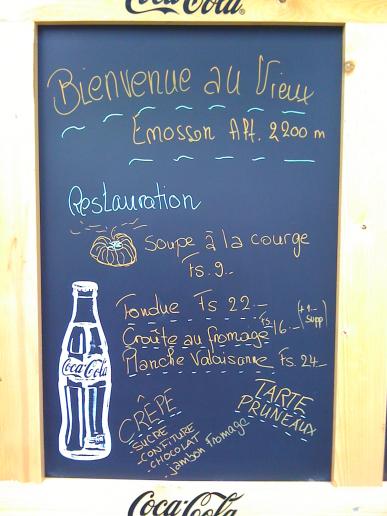 Coca-Cola
Bienvenue au Vieux
Emosson Alt. 2200 m
Restauration
Soupe à la courge
Fs. 9.-
Fondue Fs 22.-
Croûte au fromage Fs 16.- (+1.- supp)
Planche Valaisanne Fs. 24.-
Coca-Cola
CRÊPE
- SUCRE
- CONFITURE
- CHOCOLAT
- jambon fromage
TARTE
PRUNEAUX
Coca-Cola